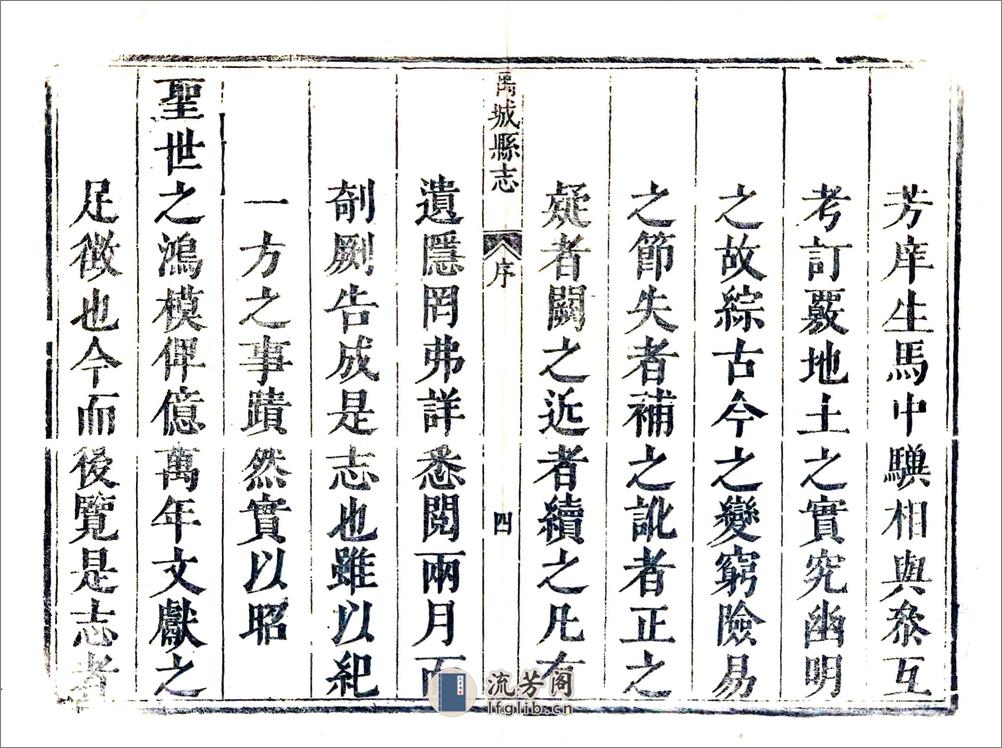 芳庠生馬中驥相與叅互
考訂覈地土之實究幽明
之故綜古今之變窮險易
之節失者補之訛者正之
疑者闕之近者續之凡有
禹城縣志
序
四
遺隱罔弗詳悉閱兩月而
剞劂告成是志也雖以紀
一方之事蹟然實以昭
聖世之鴻模俾億萬年文獻之
足徵也今而後覽是志者
流芳阁
lfglib.cn